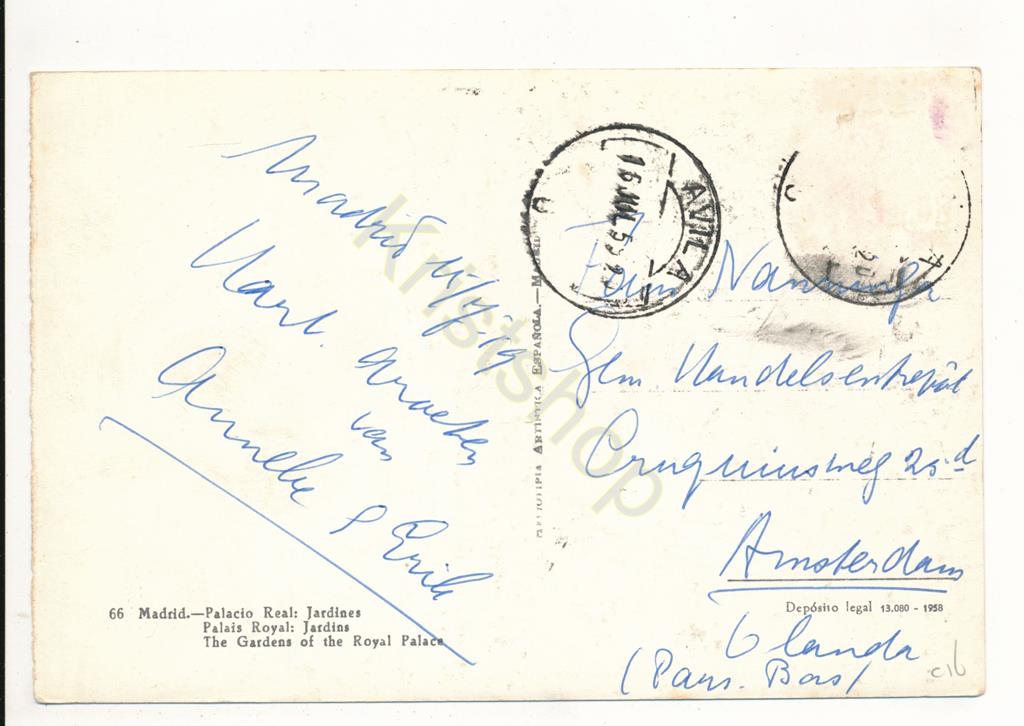 Madrid
Hart. groeten
van
Anneke & Erik
66 Madrid.—Palacio Real: Jardines
Palais Royal: Jardins
The Gardens of the Royal Palace
HELIOTIPIA ARTISTICA ESPAÑOLA.—MADRID
AVILA
Fam. Nanninga
Gem Handelsentrepôt
Cruquiusweg 25 d
Amsterdam
Depósito legal 13.080 - 1958
Olanda
(Pays. Bas)
c16
Kristshop